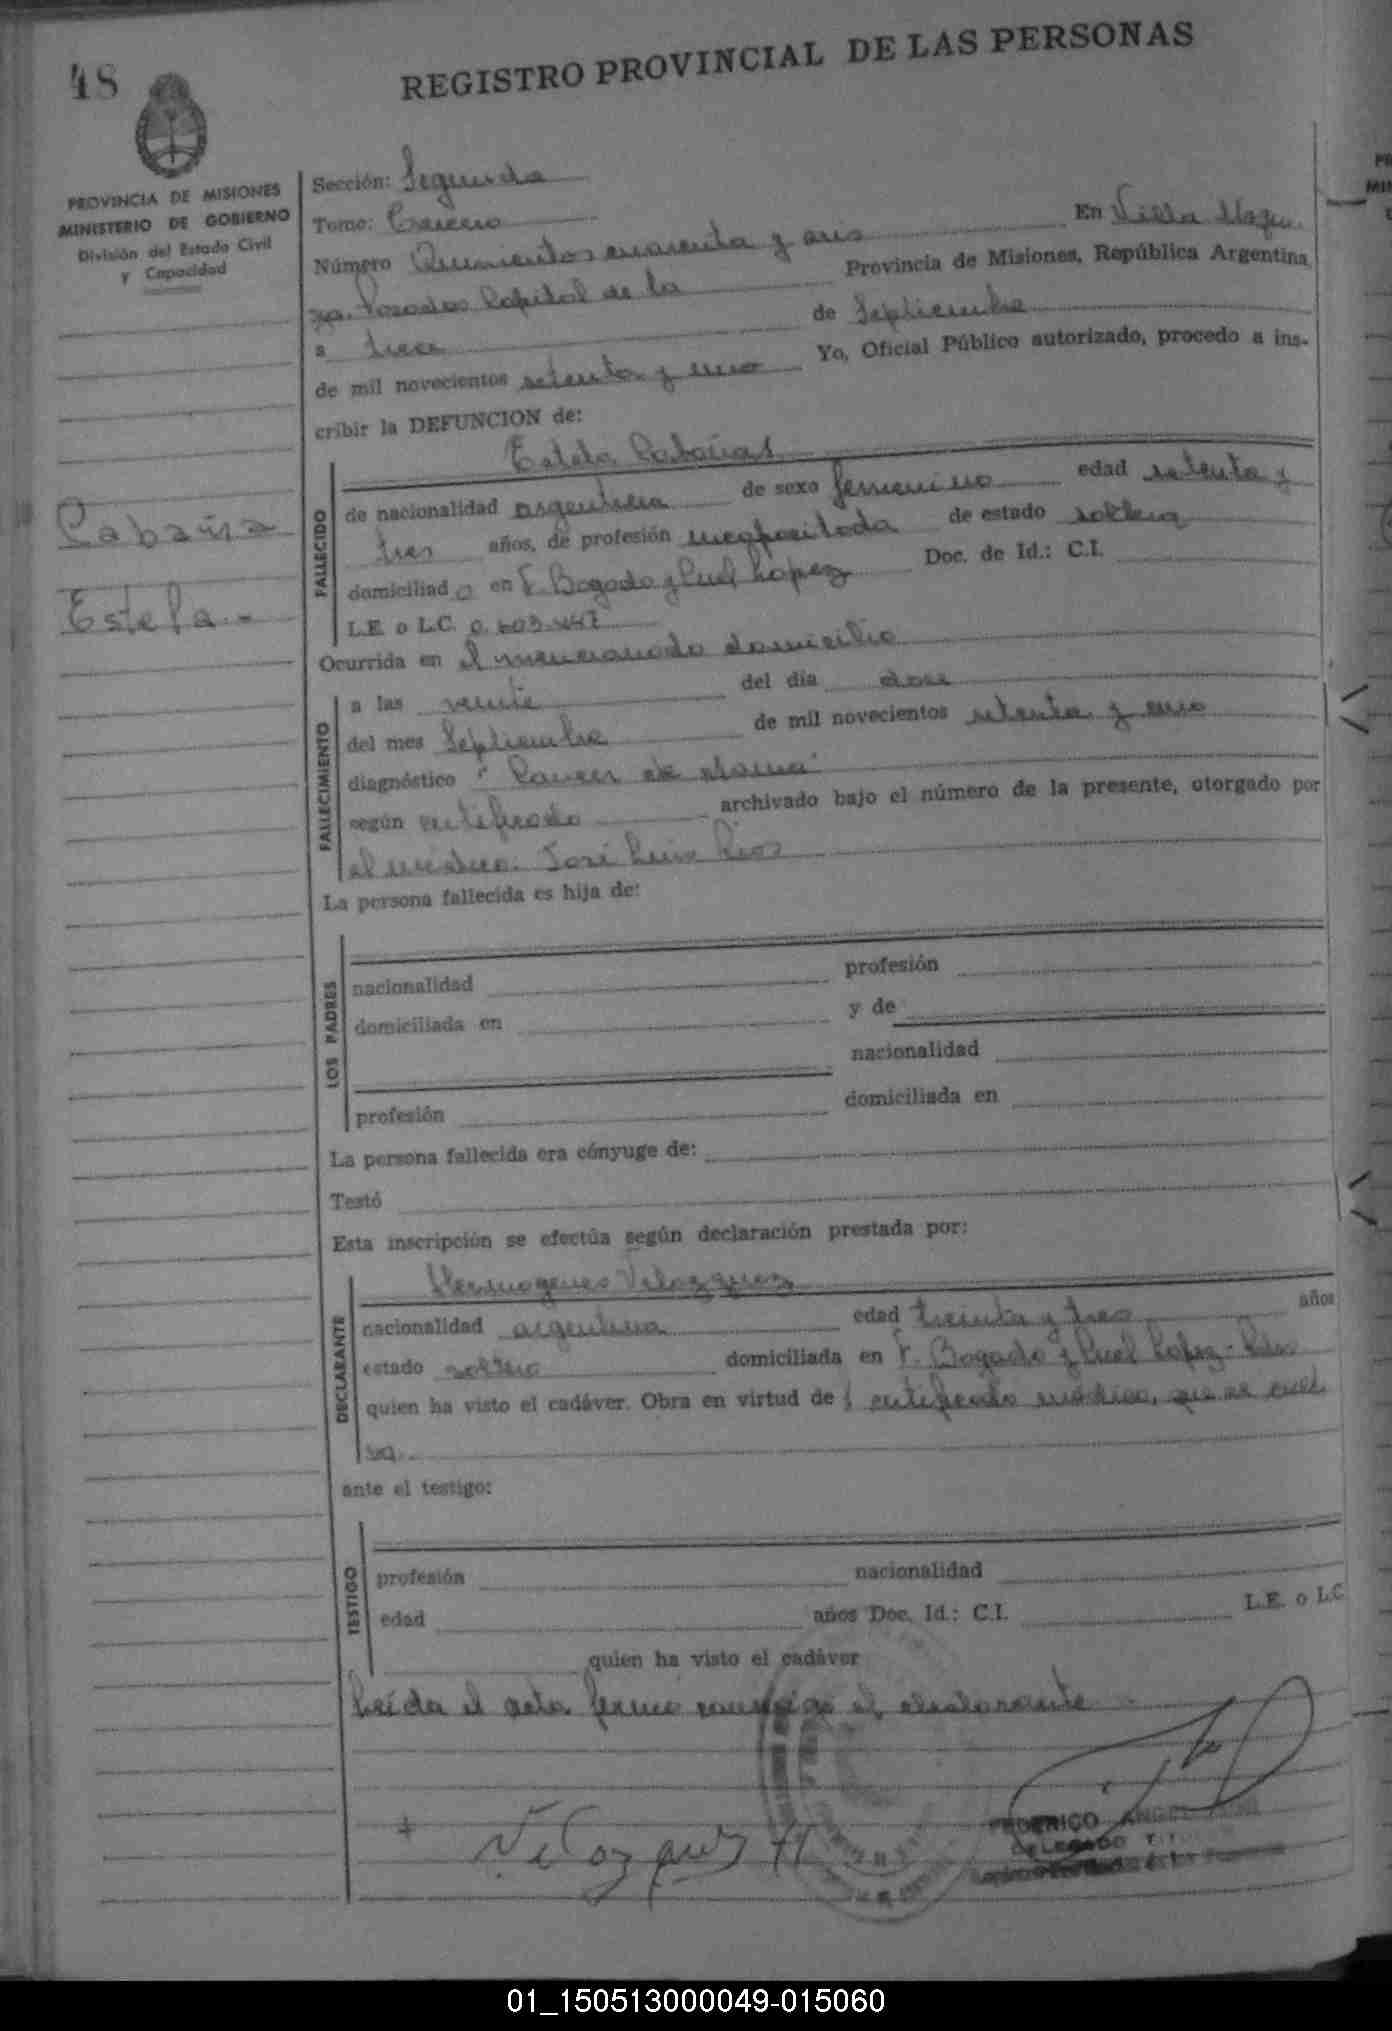 48
REGISTRO PROVINCIAL DE LAS PERSONAS
PROVINCIA DE MISIONES
MINISTERIO DE GOBIERNO
División del Estado Civil
y Capacidad
Sección: Segunda
Tomo: Tercero
Número Quinientos cuarenta y seis En Villa
Posadas Capital de la Provincia de Misiones, República Argentina,
a trece de Septiembre
de mil novecientos setenta y uno Yo, Oficial Público autorizado, procedo a ins-
cribir la DEFUNCION de:
Cabaña
Estela.-
FALLECIDO
Estela Cabañas
de nacionalidad argentina de sexo femenino edad setenta y
tres años, de profesión de estado soltera
domiciliad a en F. Bogado y Cnel Lopez Doc. de Id.: C.I.
L.E. o L.C.
Ocurrida en el mencionado domicilio
FALLECIMIENTO
a las veinte del día doce
del mes Septiembre de mil novecientos setenta y uno
diagnóstico "Cancer de mama"
según certificado archivado bajo el número de la presente, otorgado por
el médico: José Luis Rios
La persona fallecida es hija de:
LOS PADRES
nacionalidad profesión
domiciliada en y de
nacionalidad
profesión domiciliada en
La persona fallecida era cónyuge de:
Testó
Esta inscripción se efectúa según declaración prestada por:
DECLARANTE
Hermogenes Velazquez
nacionalidad argentina edad treinta y tres años
estado soltero domiciliada en F. Bogado y Cnel Lopez-
quien ha visto el cadáver. Obra en virtud de certificado médico, que se
ante el testigo:
TESTIGO
profesión nacionalidad
edad años Doc. Id.: C.I. L.E. o L.C
quien ha visto el cadáver
Leída el acta firmó conmigo el declarante
Velazquez H
FEDERICO ANGEL
DELEGADO TITULAR
01_150513000049-015060